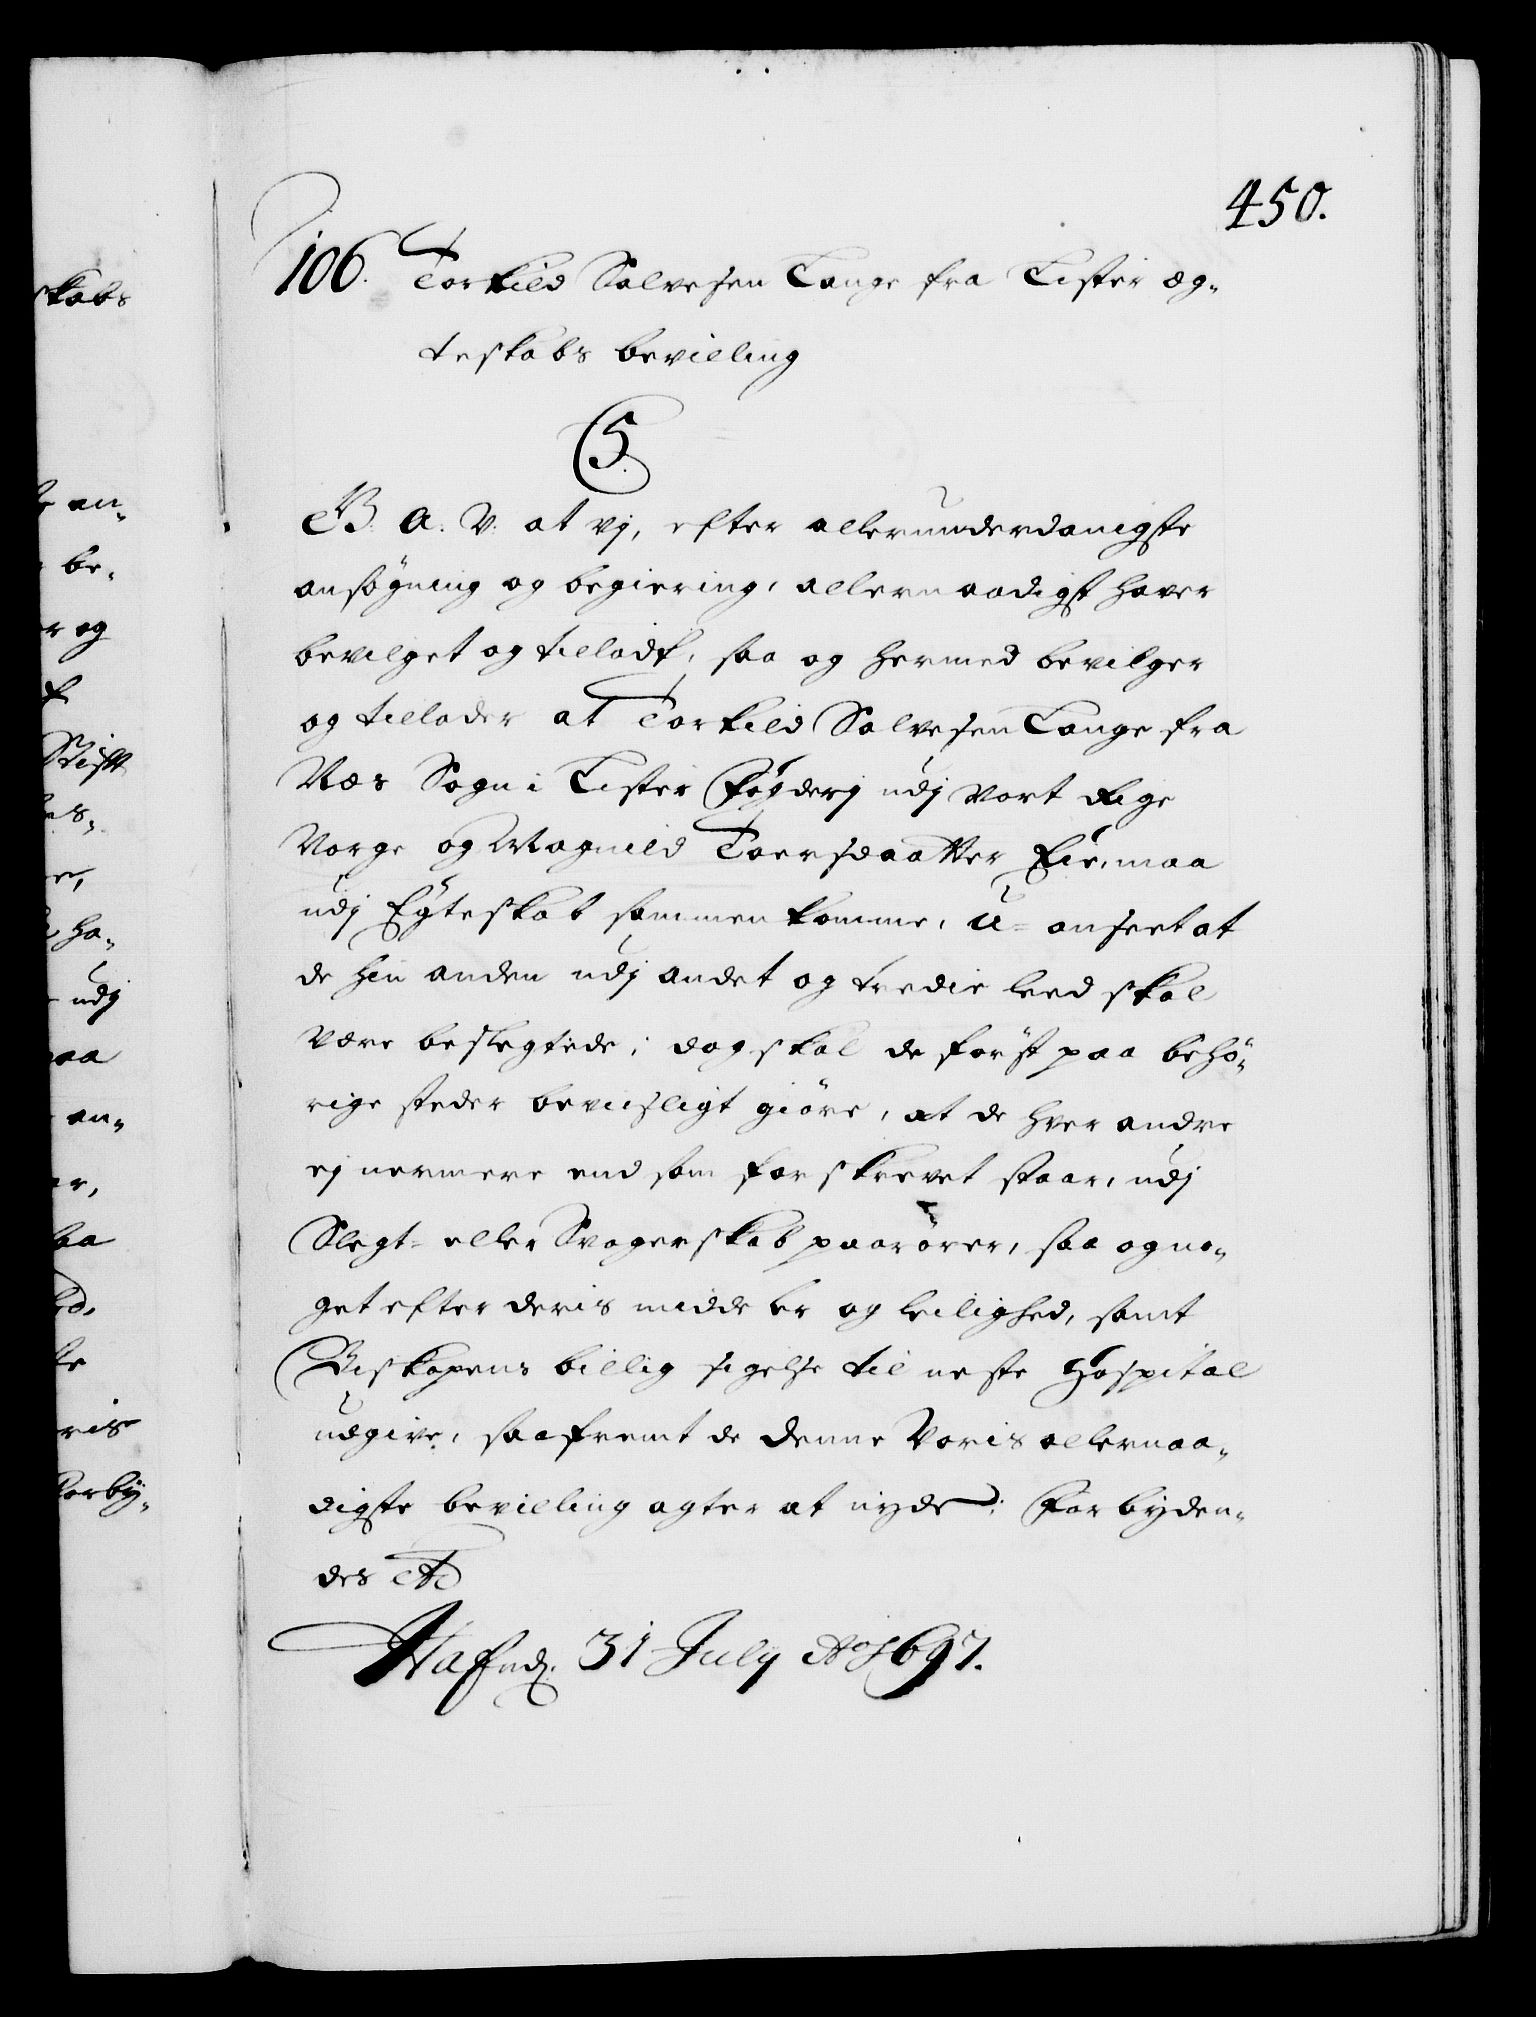 450.
106. Torkild Salvesen Lange fra Lister æg-
teskabs bevilling
C5.
G. A. V. at vj, efter allerunderdanigste
ansøgning og begiering, allernaadigst hafver
bevilget og tilladt, saa og hermed bevilger
og tillader at Torkild Salvesen Lange fra
Næs Sogn i Lister Fögderj udj vort Rige
Norge og Magnild Toersdaatter Eie, maa
udj Egteskab sammen komme, U-anseet at
de hin anden udj andet og tredie leed skal
være beslegtede; dog skal de först paa behö-
rige steder beviisligt giöre, at de hver andre
ej nermere end som forskrevet staar, udj
Slegt- eller Svogerskab paarörer, saa og no-
get efter deris midde ler og leilighed, samt
Biskopens billig sigelse til neste Hospital
udgive, saafremt de denne Voris allernaa-
digste bevilling agter at nyde; Forbyden-
des etc
Hafnd. 31 July Ao 1697.
skabs
an-
be-
r og
Stift
e,
ha-
udj
aa
an-
er,
aa
ed,
te
ris
Forby-